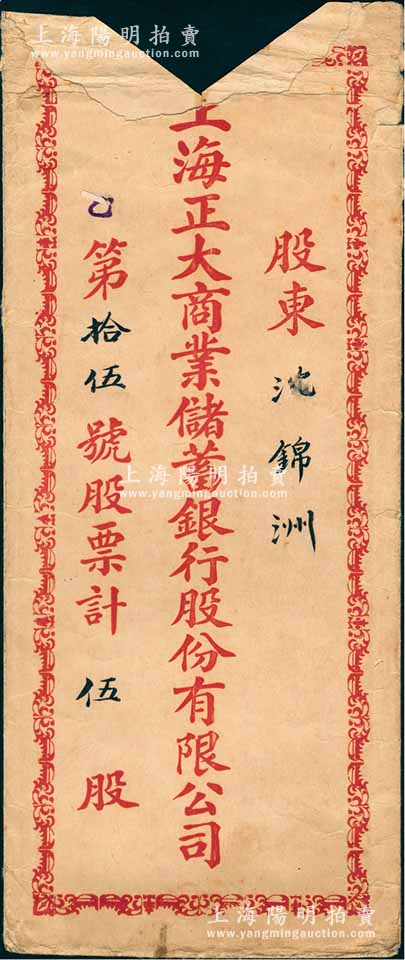 股東 沈錦洲
上海正大商業儲蓄銀行股份有限公司
乙第拾伍號股票計伍股
上海陽明拍賣
www.yangmingauction.com
上海陽明拍賣
www.yangmingauction.com
上海陽明拍賣
www.yangmingauction.com